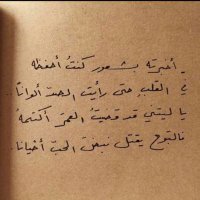 أخبرته بشعور كنتُ أحفظه
في القلبِ حتى رأيتُ الصدَّ ألوانا..
يا ليتني قد قضيتُ العمرَ أكتمهُ
فالبوح يقتل نبضَ الحبِّ أحيانا.